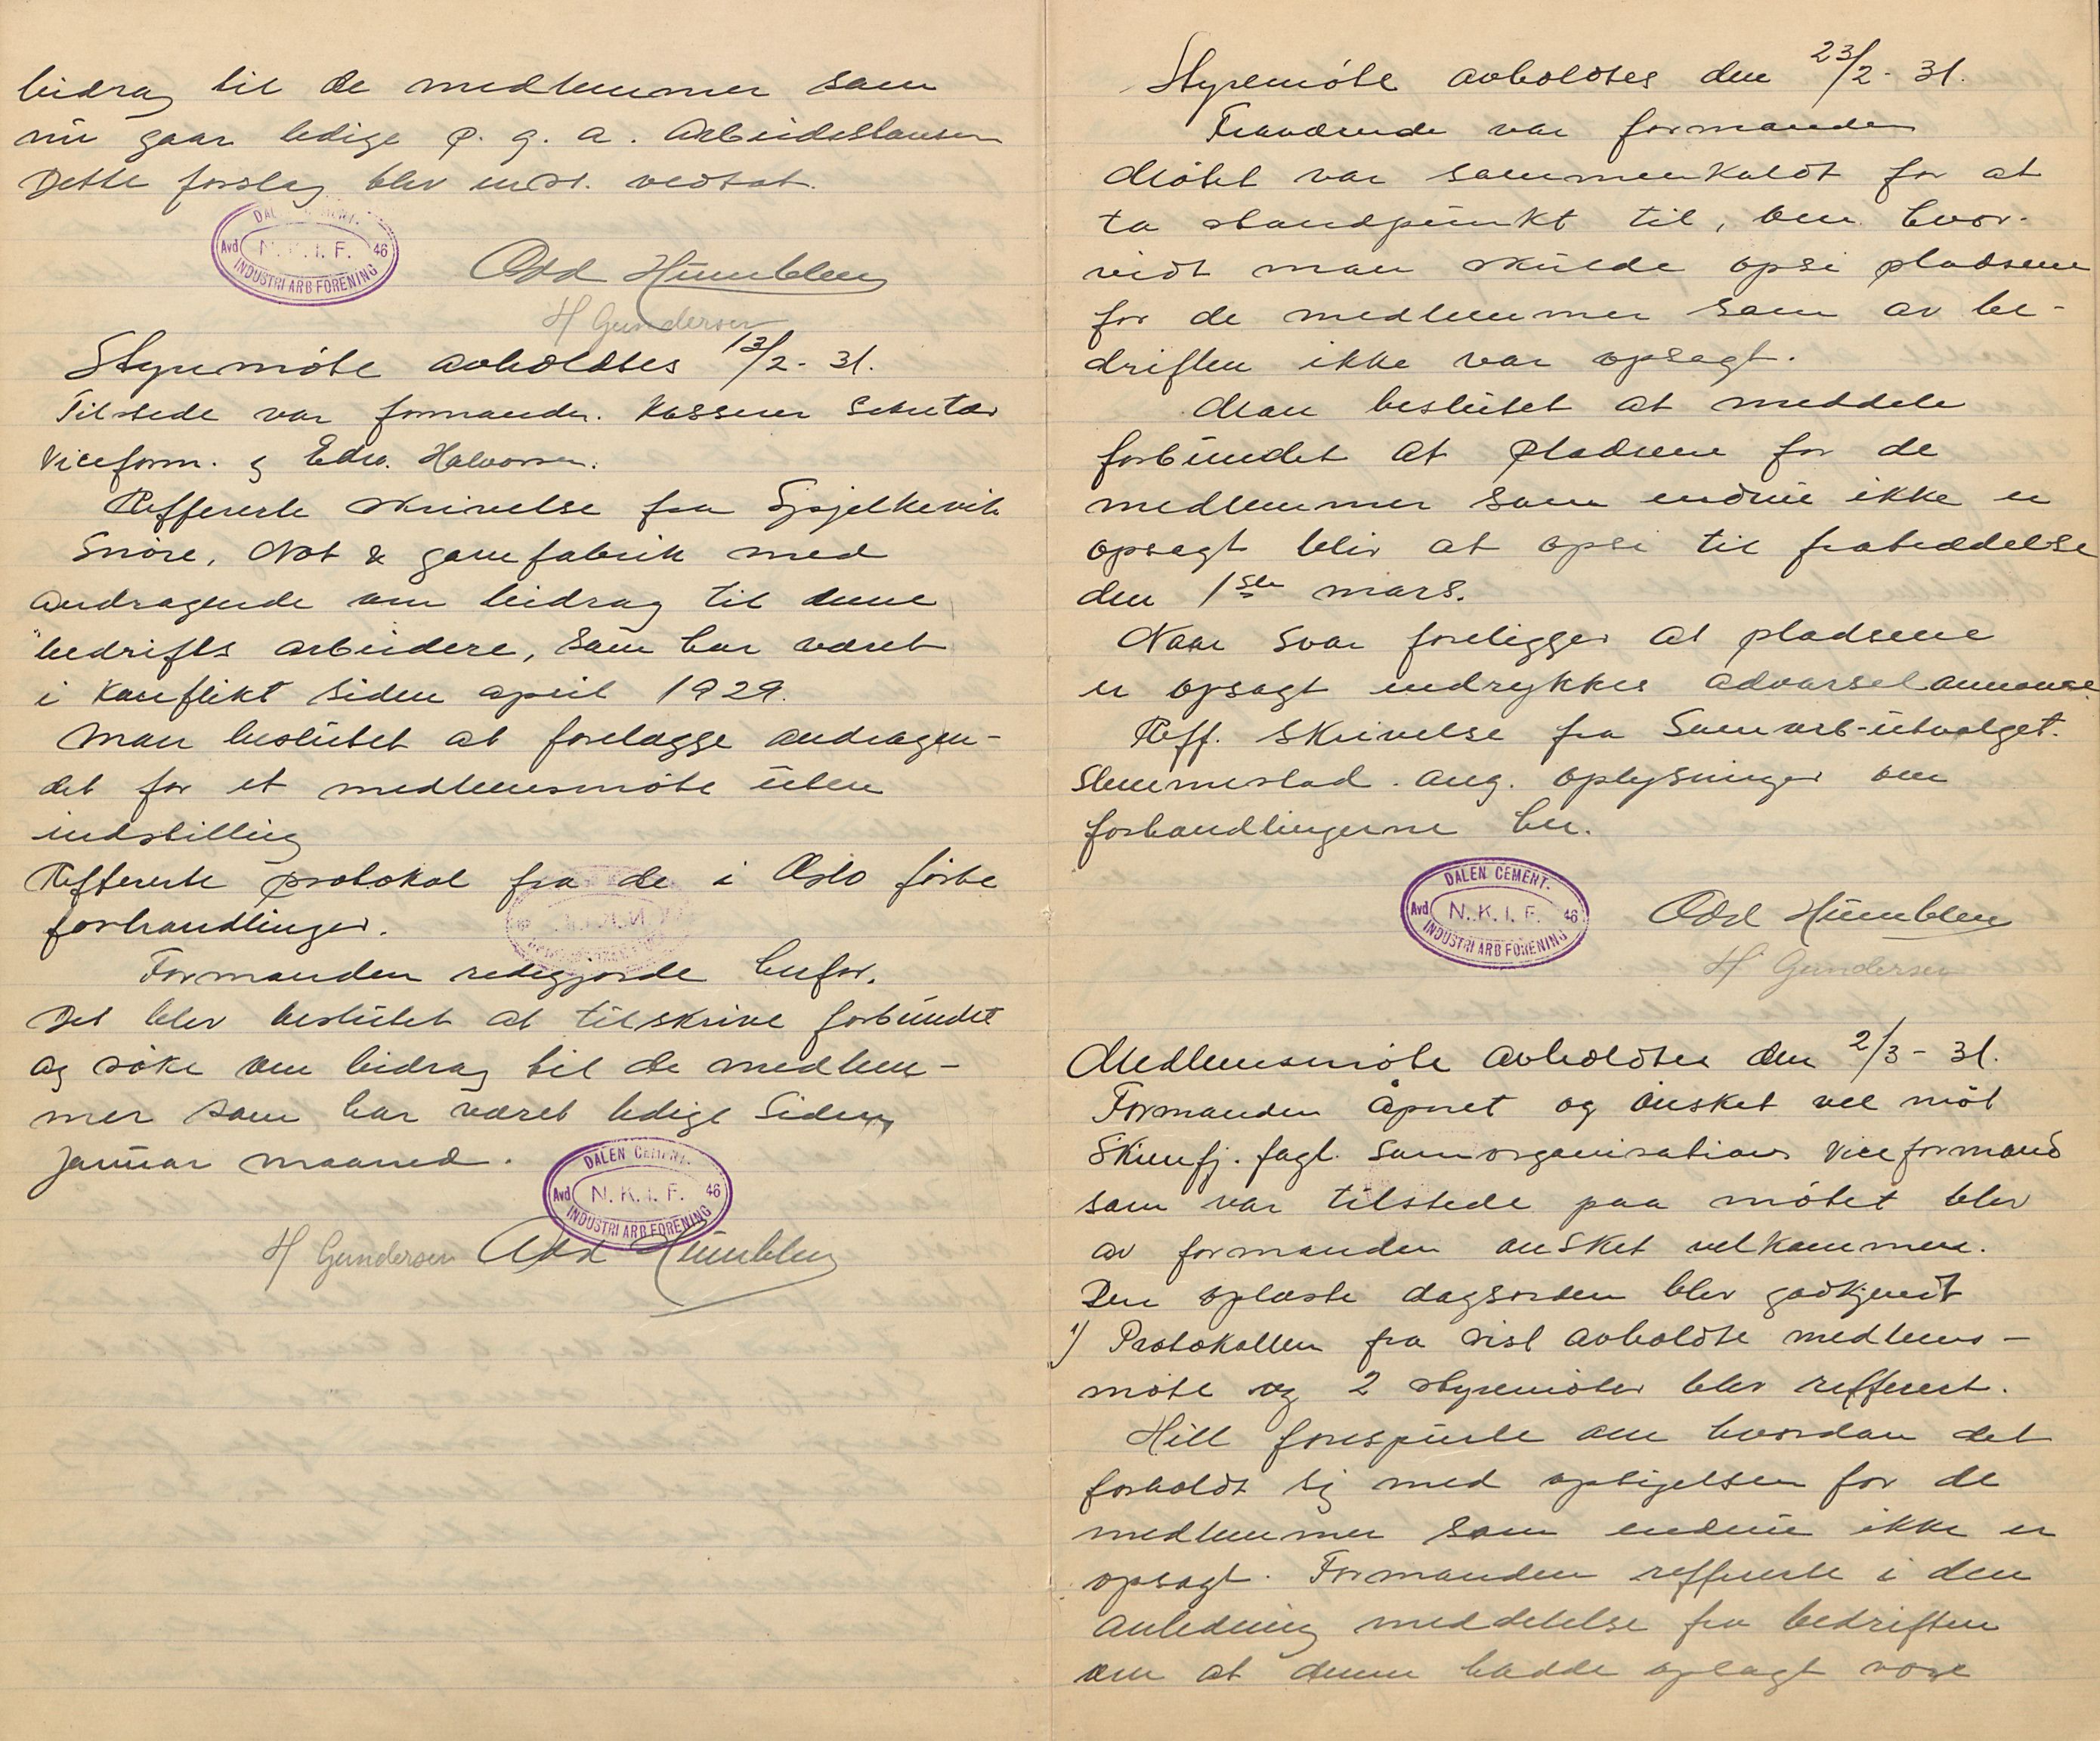 bidrag til de medlemmer som
nu gaar ledige p. g. a. Arbeidsstansen
Dette forslag blev enst. vedtat.
DALEN CEMENT.
Avd N. K. I. F. 46
INDUSTRI ARB FORENING
Odd Humblen
H Gundersen
Styremöte avholdtes 13/2- 31.
Tilstede var formanden. Kasserer Sekretær
Viceform. og Edv. Halvorsen.
Reffererte skrivelse fra Spjelkevik
Snöre, Not & garnfabrik med
andragende om bidrag til denne
bedrifts arbeidere, som har været
i Konflikt siden april 1929.
Man besluttet at forelægge andragen-
det for et medlemsmöte uten
indstilling
Reffererte protokol fra de i Oslo förte
forhandlinger.
Formanden redegjorde herfor.
Det blev besluttet at tilskrive forbundet
og söke om bidrag til de medlem-
mer som har været ledige Siden
Januar maaned.
DALEN CEMENT.
Avd N. K. I. F. 46
INDUSTRI ARB FORENING
H Gundersen Odd Humblen
Styremöte avholdtes den 23/2- 31.
Fraværende var formanden
Mötet var sammenkaldt for at
ta standpunkt til, om hvor-
vidt man skulde opsi pladsene
for de medlemmer som av be-
driften ikke var opsagt.
Man besluttet at meddele
forbundet at Pladsene for de
medlemmer som endnu ikke er
opsagt blir at opsi til fratreddelse
den 1ste mars.
Naar svar foreligger at pladsene
er opsagt indrykkes advarselannonse.
Reff. Skrivelse fra Samarb-utvalget.
Slemmestad. ang. oplysninger om
forhandlingerne her.
DALEN CEMENT.
Avd N. K. I. F. 46
INDUSTRI ARB FORENING
Odd Humblen
H Gundersen
Medlemsmöte avholdtes den 2/3- 31.
Formanden åpnet og önsket vel möt
Skiensfj. fagl. Samorganisations Viceformand
som var tilstede paa mötet blev
av formanden önsket velkommen.
Den oplæste dagsorden blev godkjendt
1) Protokollen fra sist avholdte medlems-
möte og 2 styremöter blev reffereret.
Hill forespurte om hvordan det
forholdt sig med opsigelsen for de
medlemmer som endnu ikke er
opsagt. Formanden reffererte i den
anledning meddelelse fra bedriften
om at denne hadde oplagt vore